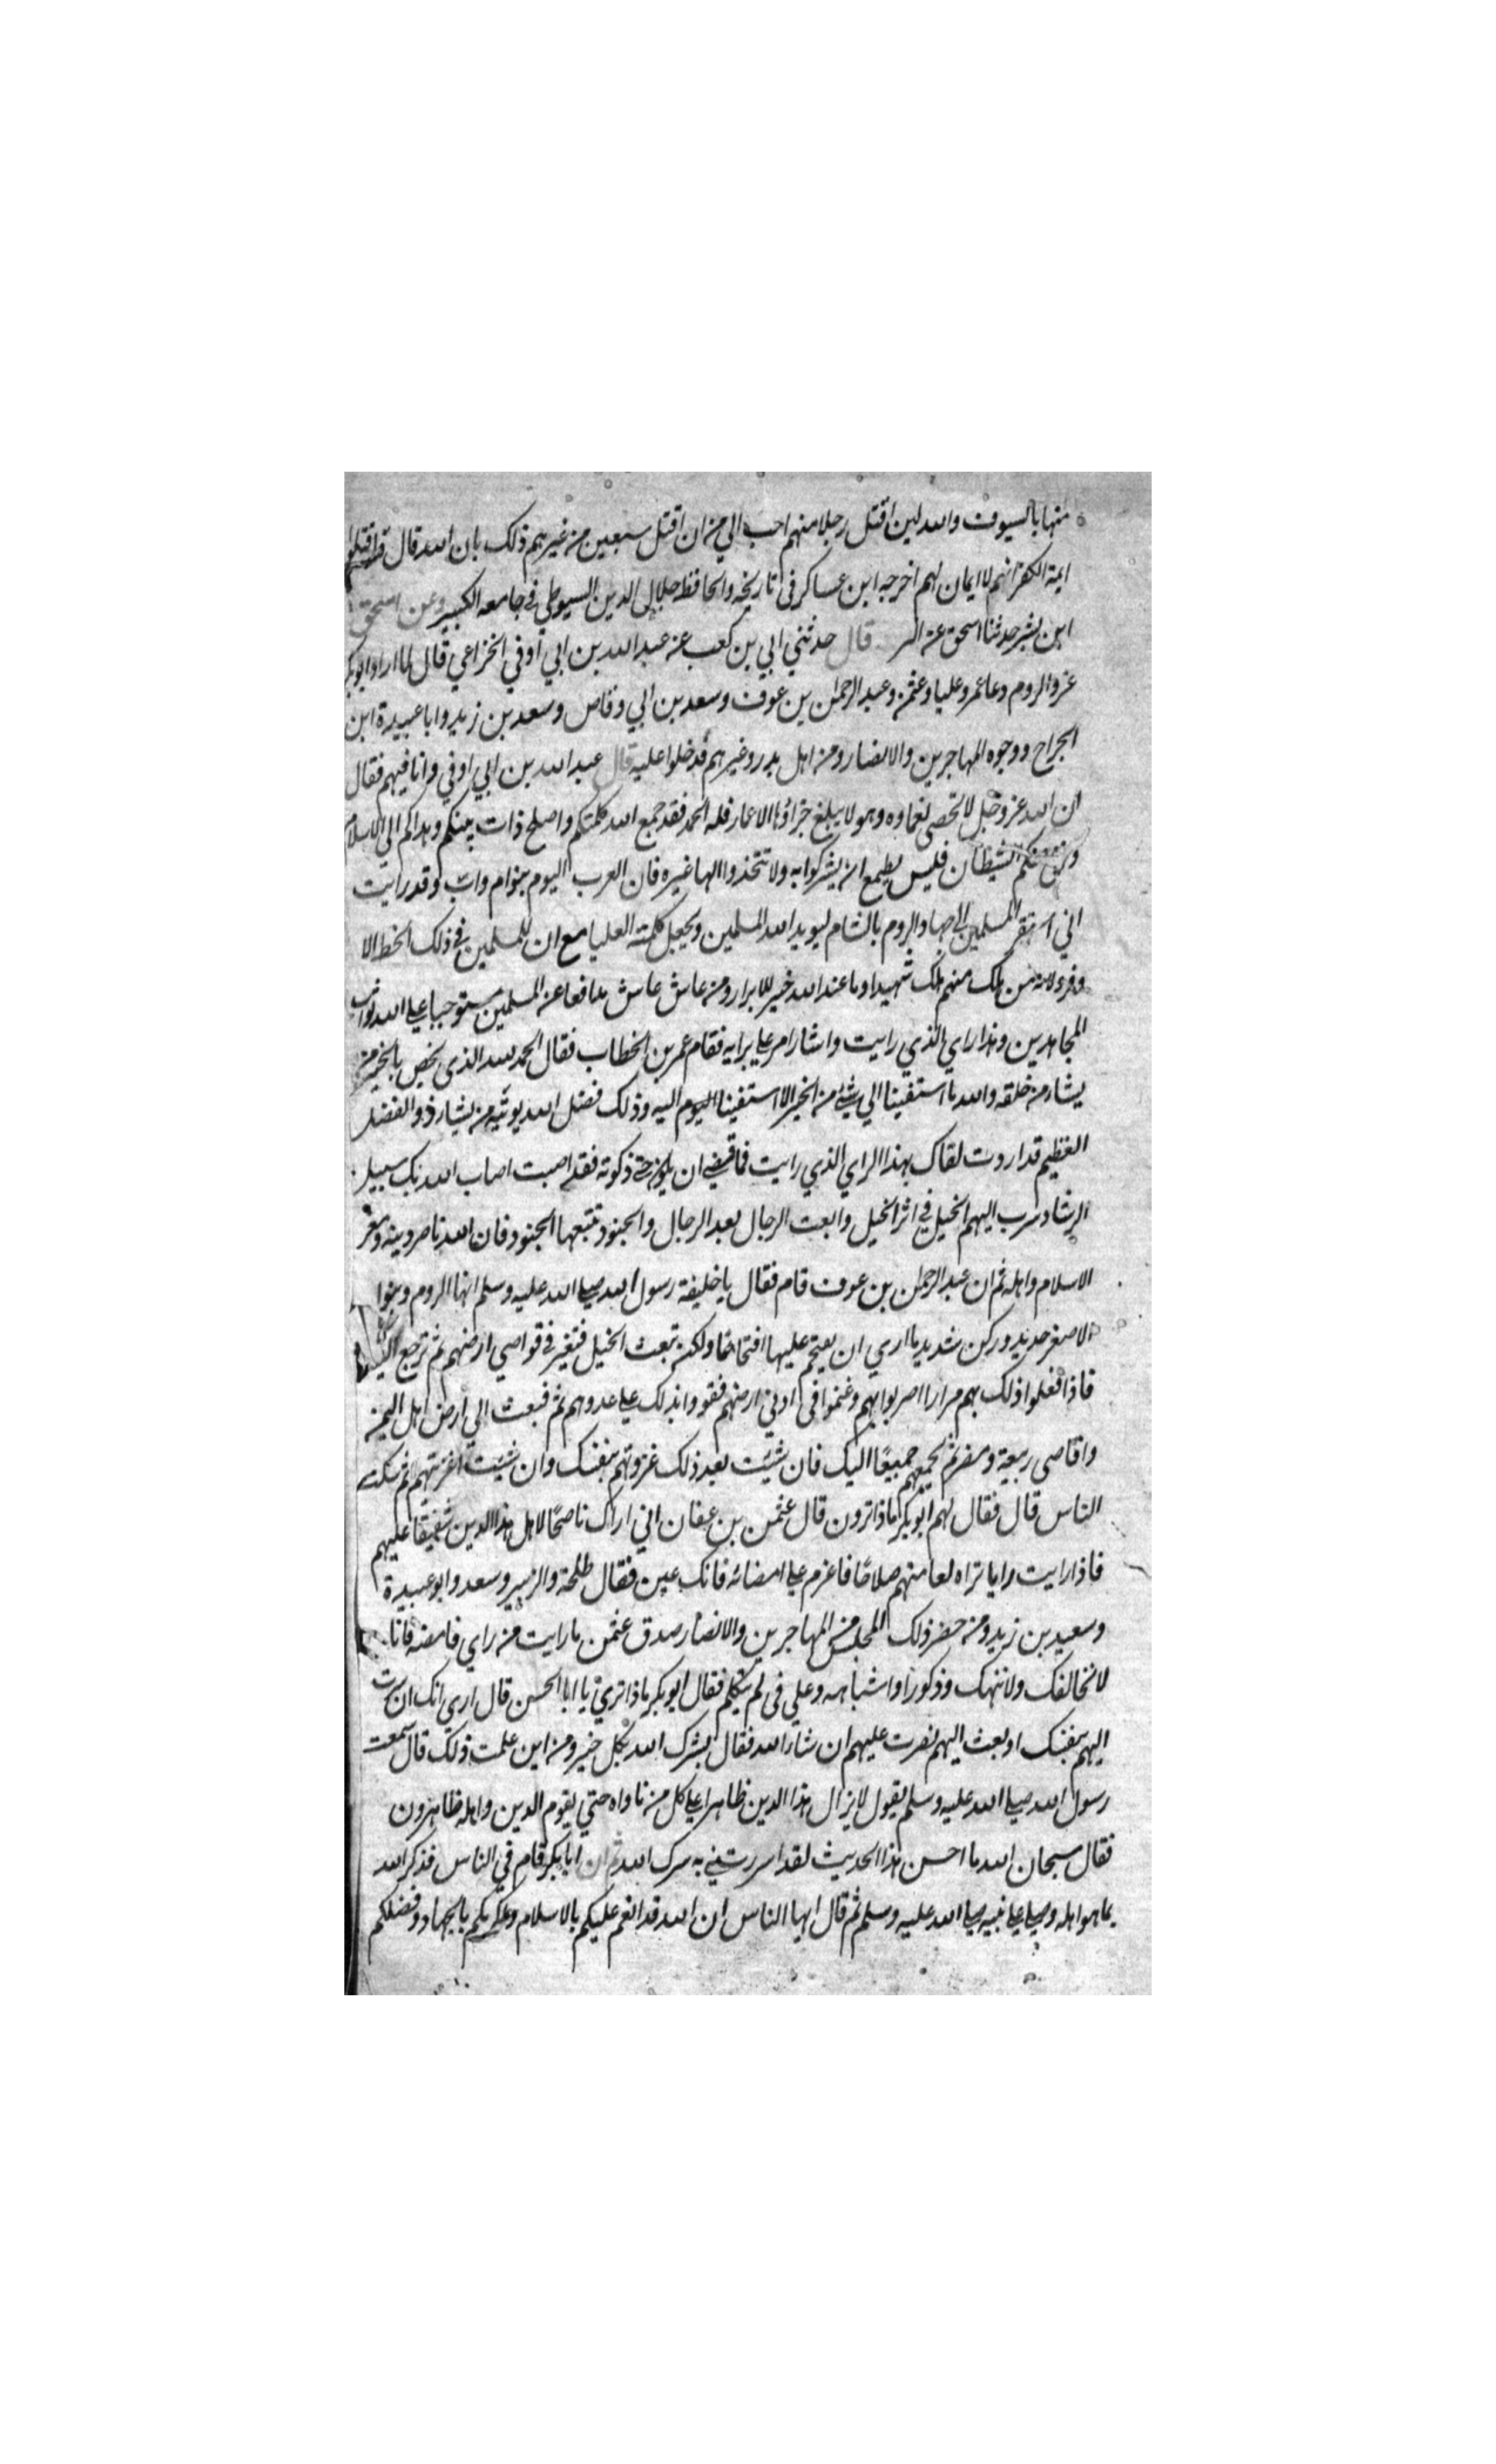 منها بالسيوف والله لين اقتل رجلا منهم احب الي من ان اقتل سبعين من غيرهم ذلك بان الله قال قاتلوا
ايمة الكفر انهم لا ايمان لهم اخرجه ابن عساكر في تاريخه والحافظ جلال الدين السيوطي في جامعه الكبير وعن اسحق
ابن بشر حدثنا اسحق عن قال حدثني ابي بن كعب عن عبد الله بن ابي اوفي الخزاعي قال لما اراد ابوبكر
غزو الروم دعا عمر وعليا وعثمن وعبد الرحمن بن عوف وسعد بن ابي وقاص وسعد بن زيد وابا عبيدة ابن
الجراح ووجوه المهاجرين والانصار ومن اهل بدر وغيرهم فدخلوا عليه قال عبد الله بن ابي اوفي وانا فيهم فقال
ان الله عز وجل لا تحصى نعماوه وهو لا يبلغ جزاؤها الاعمار فله الحمد فقد جمع الله كلمتكم واصلح ذات بينكم وهداكم الي الاسلام
الشيطان فليس يطمع ان يشركوا به ولا تتخذوا الها غيره فان العرب اليوم بنوام واب وقد رايت
اني استنفر المسلمين الي جهاد الروم بالشام ليويد الله المسلمين ويجعل كلمته العليا مع ان للمسلمين في ذلك الحظ الا
وفر لانه من هلك منهم هلك شهيدا وما عند الله خير للابرار ومن عاش عاش مدافعا عن المسلمين مستوجبا علي الله ثواب
المجاهدين وهذا راي الذي رايت واشار امر علي برايه فقام عمر بن الخطاب فقال الحمد لله الذي يخص بالخير من
يشار من خلقه والله ما استفينا الي شيء من الخير الا استفينا اليوم اليه وذلك فضل الله يوتيه من يشار ذو الفضل
العظيم قد اردت لقاك بهذا الراي الذي رايت فما قضي ان يكون حتي ذكرته فقد اصبت اصاب الله بك سبيل
الرشاد سرب اليهم الخيل في اثر الخيل وابعت الرجال بعد الرجال والجنود تتبعها الجنود فان الله ناصر دينه ومعز
الاسلام واهله ثم ان عبد الرحمان بن عوف قام فقال يا خليفة رسول الله صلي الله عليه وسلم انها الروم وبنوا
الاصفر حديد وركن شديد ما اري ان يقتحم عليها اقتحاما ولكن تبعث الخيل فتغير في قواصي ارضهم ثم ترجع اليك
فاذا فعلوا ذلك بهم مرارا اضر بوابهم وغنموا في ادني ارضهم فقووا بذلك علي عدوهم ثم فبعث الي ارض اهل اليمن
واقاصي ربيعة ومضر ثم تجمعهم جميعا اليك فان شئت بعد ذلك غزوتهم بنفسك وان شيت اغزيتهم ثم سكت
الناس قال فقال لهم ابوبكر ماذا ترون قال عثمن بن عفان اني اراك ناصحا لاهل هذا الدين شفيقا عليهم
فاذا رايت رايا تراه لعامنهم صلاحا فاعزم علي امضائه فانك عين فقال طلحة والزبير وسعد وابو عبيدة
وسعيد بن زيد ومن حضر ذلك المجلس من المهاجرين والانصار صدق عثمن ما رايت من راي فامضه فانا
لا نخالفك ولا نتهك وذكورا واشباهه وعلي في لم يتكلم فقال ابوبكر ماذا تري يا ابا الحسن قال اري انك ان سرت
اليهم بنفسك او بعث اليهم نصرت عليهم ان شار الله فقال بشرك الله بكل خير ومن اين علمت ذلك قال سمعت
رسول الله صلي الله عليه وسلم يقول لا يزال هذا الدين ظاهرا علي كل من ناواه حتي يقوم الدين واهله ظاهرون
فقال سبحان الله ما احسن هذا الحديث لقد اسررتني به سرك الله ثم ان ابا بكر قام في الناس فذكر الله
بما هو اهله وصلي علي نبيه صلي الله عليه وسلم ثم قال ايها الناس ان الله قد انعم عليكم بالاسلام وعلمكم بالجهاد وفضلكم